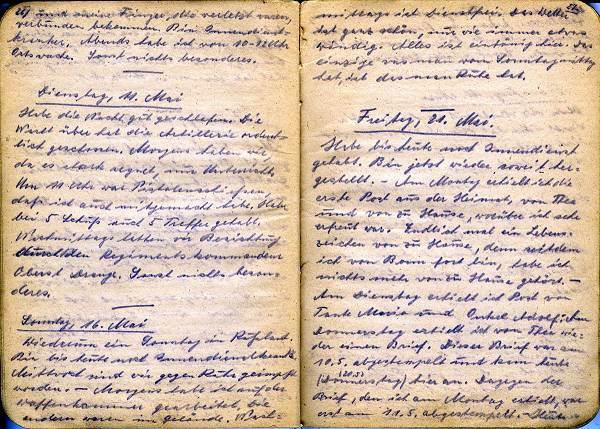 und meine Finger, die verletzt waren,
verbunden bekommen. Bin Innendienst-
kranker. Abends habe ich von 10-12 Uhr
Ortswache. Sonst nichts besonderes.
Dienstag, 11. Mai
Habe die Nacht gut geschlafen. Die
Nacht über hat die Artillerie ordent-
lich geschossen. Morgens haben wir,
da es stark regnet, nur Unterricht.
Um 11 Uhr war Pistolenschießen,
daß ich auch mitgemacht habe. Habe
bei 5 Schuß auch 5 Treffer gehabt.
Nachmittags hatten wir Besichtigung
durch den Regimentskommandeur
Oberst. Sonst nichts beson-
deres.
Sonntag, 16. Mai
Wiederum ein Sonntag in
Bin bis heute noch Innendienstkrank.
Mittwoch sind wir gegen Ruhr geimpft
worden. — Morgens habe ich auf der
Waffenkammer gearbeitet, die
andern waren im Gelände. Nach-
mittags ist dienstfrei. Das Wetter
ist ganz schön, nur wie immer etwas
windig. Alles ist eintönig hier. Das
einzige was man vom Sonntagmittag
hat, ist das man Ruhe hat.
Freitag, 21. Mai.
Habe bis heute noch Innendienst
gehabt. Bin jetzt wieder soweit her-
gestellt. — Am Montag erhielt ich die
erste Post aus der Heimat, von Thea
und von zu Hause, worüber ich sehr
erfreut war. Endlich mal ein Lebens-
zeichen von zu Hause, denn seitdem
ich von Bonn fort bin, habe ich
nichts mehr von zu Hause gehört. —
Am Dienstag erhielt ich Post von
Tante Maria und Onkel Adolf; Am
Donnerstag erhielt ich von Thea wie-
der einen Brief. Dieser Brief war am
10.5. abgestempelt und kam heute
(Donnerstag) (20.5.) hier an. Dagegen der
Brief, den ich am Montag erhielt, war
erst am 11.5. abgestempelt. — Heute